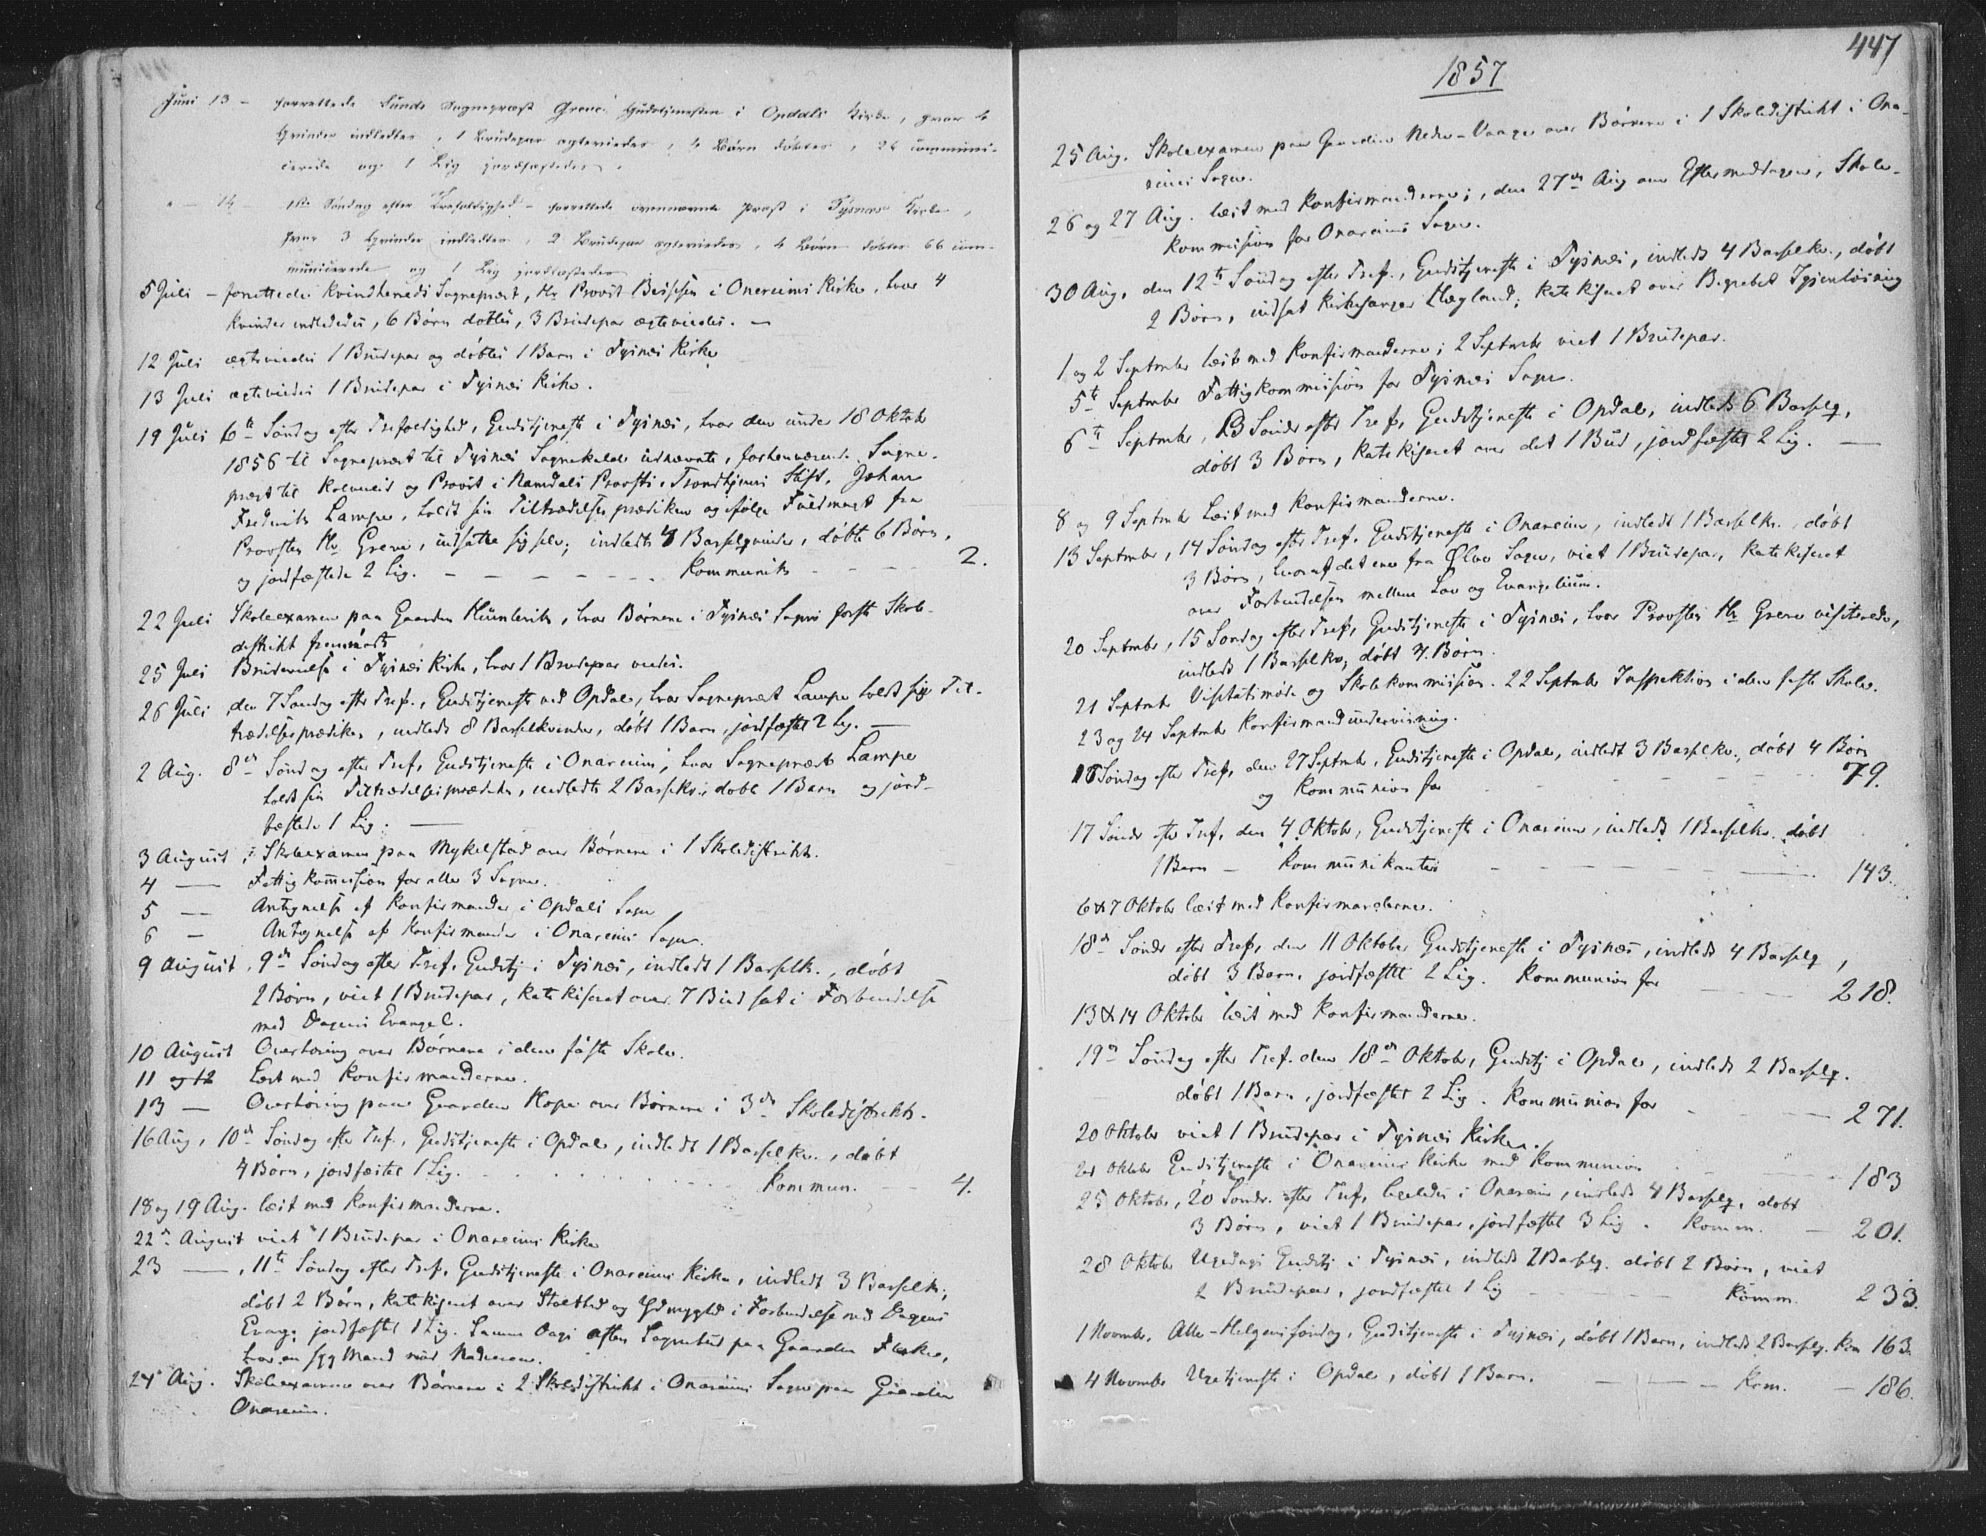 Juni 13 – forrettede Sunds Sognepræst Greve Gudstjenesten i Opdals Kirke, hvor 4
Qvinder indledtes, 1 Brudepar egteviedes, 4 Børn døbtes, 26 communi-
cerede og 1 Lig jordfæstedes.
" – 14 – 1ste Søndag efter Trefoldighed – forrettede ovennævnte Præst i Tysnæs Kirke,
hvor 3 Qvinder indledtes, 2 Brudepar egteviedes, 4 Børn døbtes 66 com-
municerede og 1 Lig jordfæstedes
5 Juli – forrettede Kvindherreds Sognepræst, Hr Provst i Onareims Kirke, hvor 4
Kvinder indlededes, 6 Børn døbtes, 3 Brudepar ægteviedes. –
12 Juli ægteviedes 1 Brudepar og døbtes 1 Barn i Tysnæs Kirke
13 Juli ægteviedes 1 Brudepar i Tysnæs Kirke.
19 Juli 6te Søndag efter Trefoldighed, Gudstjeneste i Tysnæs, hvor den under 18 Oktob
1856 til Sognepræst til Tysnæs Sognekald udnævnte, forhenværende Sogne-
præst til Kolvereid og Provst i Namdals Provsti, Trondhjems Stift, Johan
Frederik Lampe, holdt sin Tiltrædelsesprædiken og ifølge Fuldmagt fra
Provsten Hr Greve, indsatte sig selv; indledte 8 Barselqvinder, døbte 6 Børn,
og jordfæstede 2 Lig. – – – – – – Kommunik – – – – 2.
22 Juli Skoleexamen paa Gaarden, hvor Børnene i Tysnæs Sogns første Skole-
distrikt fremmødte
25 Juli Brudevielse i Tysnæs Kirke, hvor 1 Brudepar viedes.
26 Juli den 7 Søndag efter Tref., Gudstjeneste ved Opdal, hvor Sognepræst Lampe holdt sin Til-
trædelsesprædiken, indledt 8 Barselkvinder, døbt 1 Barn, jordfæstet 2 Lig. –
2 Aug. 8de Søndag efter Tref, Gudstjeneste i Onareim, hvor Sognepræst Lampe
holdt sin Tiltrædelsesprædiken, indledte 2 Barselkv. døbt 1 Barn og jord-
fæstede 1 Lig. –
3 August, Skoleexamen paa Mykelstad over Børnene i 1 Skoledistrikt.
4 – Fattigkommission for alle 3 Sogne.
5 – Antegnelse af Konfirmander i Opdals Sogn
6 – Antegnelse af Konfirmander i Onareims Sogn.
9 August, 9de Søndag efter Tref. Gudstj i Tysnæs, indledt 1 Barselk., døbt
2 Børn, viet 1 Brudepar, katekiseret over 7 Bud sat i Forbindelse
med Dagens Evangel.
10 August Overhøring over Børnene i den faste Skole.
11 og 12 Læst med Konfirmanderne.
13 – Overhøring paa Gaarden Hope over Børnene i 3de Skoledistrikt.
16 Aug, 10de Søndag efter Tref, Gudstjeneste i Opdal, indledt 1 Barselkv., døbt
4 Børn, jordfæstet 1 Lig. Kommun. – – 4.
18 og 19 Aug. læst med Konfirmanderne.
22de August viet 1 Brudepar i Onareims Kirke
23 –, 11te Søndag efter Tref, Gudstjeneste i Onareims Kirke, indledt 3 Barselk.,
døbt 2 Børn, katekiseret over Stolthed og Ydmyghed i Forbindelse med Dagens
Evang; jordfæstet 1 Lig. Samme Dags Aften Sognebud paa Gaarden,
hvor en syg Mand nød Nadveren.
24de Aug. Skoleexamen over Børnene i 2 Skoledistrikt i Onareims Sogn paa Gaarden
Onareim.
447
1857
25 Aug. Skoleexamen paa Gaarden Nedre-Vaage over Børnene i 1 Skoledistrikt i Ona-
reims Sogn.
26 og 27 Aug. læst med Konfirmanderne; den 27de Aug om Eftermiddagen, Skole-
kommission for Onareims Sogn.
30 Aug. den 12te Søndag efter Tref., Gudstjeneste i Tysnæs, indledt 4 Barselkv., døbt
2 Børn, indsat Kirkesanger Hægland; katekiseret over Begrebet Igjenløsning
1 og 2 September læst med Konfirmanderne; 2 September viet 1 Brudepar.
5te September Fattigkommission for Tysnæs Sogn.
6te September, 13 Søndag efter Tref, Gudstjeneste i Opdal, indledt 6 Barselq,
døbt 3 Børn, katekiseret over det 1 Bud, jordfæstet 2 Lig. –
8 og 9 September Læst med Konfirmanderne.
13 September, 14 Søndag efter Tref. Gudstjeneste i Onareim, indledt 1 Barselkv., døbt
3 Børn, hvoraf det ene fra Ølve Sogn, viet 1 Brudepar, Katekiseret
over Forbindelsen mellem Lov og Evangelium.
20 September, 15 Søndag efter Tref, Gudstjeneste i Tysnæs, hvor Provsten Hr Greve visiterede,
indledt 1 Barselkv, døbt 4 Børn.
21 September Visitatsmøde og Skolekommission. 22 September Inspektion i den faste Skole.
23 og 24 September Konfirmandundervisning.
16 Søndag efter Tref, den 27 Septmbr, Gudstjeneste i Opdal, indledt 3 Barselkv., døbt 4 Børn
og Kommunion for – – – – – 79.
17 Sønd efter Tref, den 4 Oktob, Gudstjeneste i Onareim, indledt 1 Barselkv. døbt
1 Barn – Kommunikanter – – – – – 143.
6 & 7 Oktober læst med Konfirmanderne.
18de Sønd efter Tref, den 11 Oktober Gudstjeneste i Tysnæs, indledt 4 Barselq,
døbt 3 Børn, jordfæstet 2 Lig. Kommunion for – – – 218.
13 & 14 Oktober læst med Konfirmanderne.
19de Søndag efter Tref. den 18de Oktober, Gudstj i Opdal, indledt 2 Barselq.
døbt 1 Barn, jordfæstet 2 Lig. Kommunion for – – – 271.
20 Oktober viet 1 Brudepar i Tysnæs Kirke.
Oktober Gudstjeneste i Onareims Kirke med Kommunion – – – 183
25 Oktober, 20 Søndr. efter Tref, i Onareim, indledt 4 Barselq, døbt
3 Børn, viet 1 Brudepar, jordfæstet 3 Lig. Komm. – 201.
28 Oktober Ugedags Gudstj i Tysnæs, indledt 2 Barselq. døbt 2 Børn, viet
2 Brudepar, jordfæstet 1 Lig – – – Komm. 233.
1 Novmbr, Alle-Helgens søndag, Gudstjeneste i Tysnæs, døbt 1 Barn, indledt 2 Barselq. Kom 163.
4 November Ugetjeneste i Opdal, døbt 1 Barn. – – – Kom. – 186.